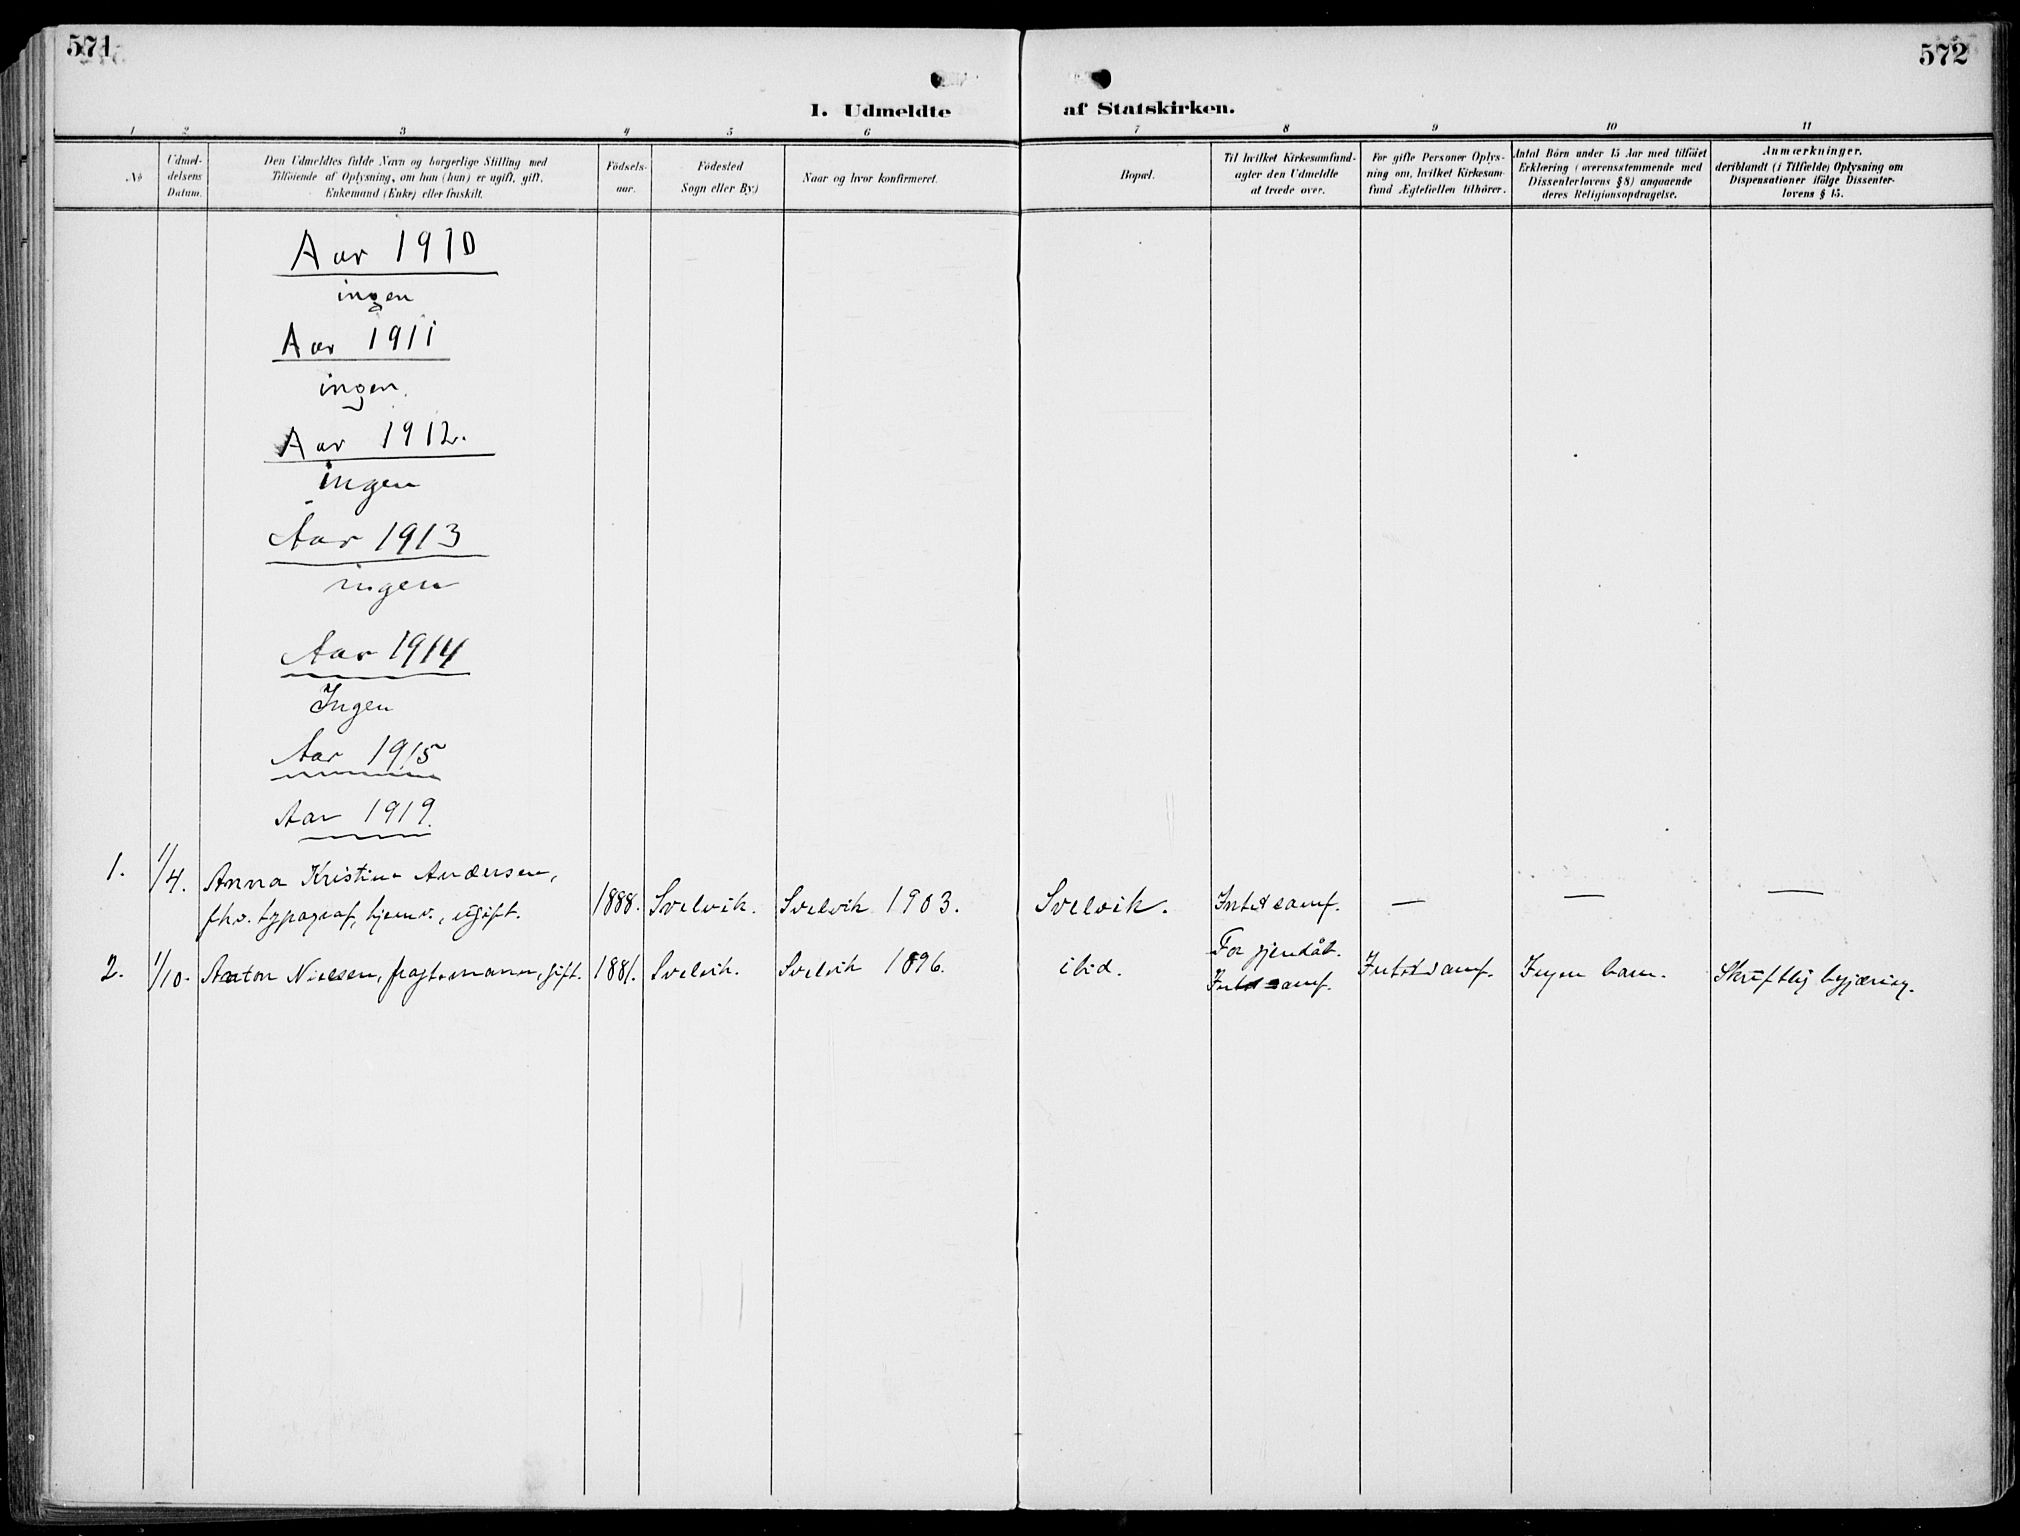 571
572
I. Udmeldte af Statskirken.
1 2 3 4 5 6 7 8 9 10 11
№
Udmel-
delsens
Datum.
Den Udmeldtes fulde Navn og borgerlige Stilling med
Tilföiende af Oplysning, om han (hun) er ugift, gift,
Enkemand (Enke) eller fraskilt.
Födsels-
aar.
Födested
Sogn eller By.)
Naar og hvor konfirmeret.
Bopæl.
Til hvilket Kirkesamfund-
agter den Udmeldte
at træde over.
For gifte Personer Oplys-
ning om, hvilket Kirkesam-
fund Ægtefællen tilhører.
Antal Börn under 15 Aar med tilföiet
Erklæring (overensstemmende med
Dissenterlovens § 8) angaaende
deres Religionsopdragelse.
Anmærkninger,
deriblandt (i Tilfælde) Oplysning om
Dispensationer ifölge Dissenter-
lovens § 15.
Aar 1910
ingen
Aar 1911
ingen.
Aar 1912.
ingen
Aar 1913
ingen
Aar 1914
Ingen
Aar 1915
Aar 1919.
1. 1/4. Anna Kristine Andersen,
fhv. typograf, hjemv., ugift. 1888. Svelvik. Svelvik 1903. Svelvik. Intet samf. — — —
2. 1/10. Anton Nielsen, fragtemann, gift. 1881. Svelvik. Svelvik 1896. ibid. For gjendåt. Intet samf. Intet samf. Ingen barn. Skriftlig begjæring.